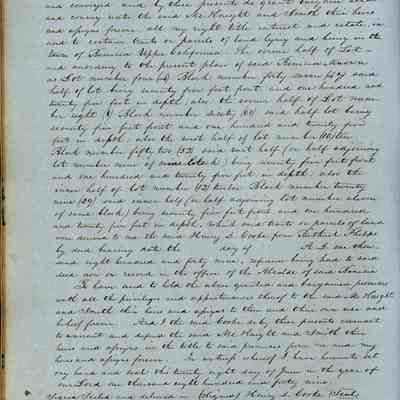 and conveyed and by these presents do grant bargain sell
and convey unto the said McKnight and Smith their heirs
and assigns forever all my right title interest and estate in
and to certain tracts or parcels of land lying and being in the
town of Benicia Upper California. The corner half of Lot
and according to the present plan of said Benicia known
as Lot number four (4) Block number forty seven (47) said
half of lot being seventy five feet front and one hundred and
twenty five feet in depth; also the corner half of Lot num
ber eight (8) Block number sixty (60) said half lot being
seventy five feet front and one hundred and twenty five
feet in depth; also the west half of lot number (10) ten
Block number fifty two (52) said west half (or half adjoining
lot number nine of same block) being seventy five feet front
and one hundred and twenty five feet in depth; also the
inner half of lot (12) twelve Block number twenty
nine (29) said inner half (or half adjoining lot number eleven
of same block) being seventy five feet front and one hundred
and twenty five feet in depth, which said tracts or parcels of land
were deeded to me the said Henry D. Cooke from Bethuel Phelps
by deed bearing date the day of A.D. one thou
sand eight hundred and forty nine, reference being had to said
deed now on record in the office of the Alcalde of said Benicia
To have and to hold the above granted and bargained premises
with all the privileges and appurtenances thereof to the said McKnight
and Smith their heirs and assigns to their and their own use and
behoof forever. And I the said Cooke do by these presents covenant
to warrant and defend the said McKnight and Smith their
heirs and assigns in the title to said premises from me and my
heirs and assigns forever. In witness whereof I have hereunto set
my hand and seal this twenty eight day of June in the year of
our Lord one thousand eight hundred and forty nine.
Signed Sealed and delivered in (Signed) Henry D. Cooke (Seal)